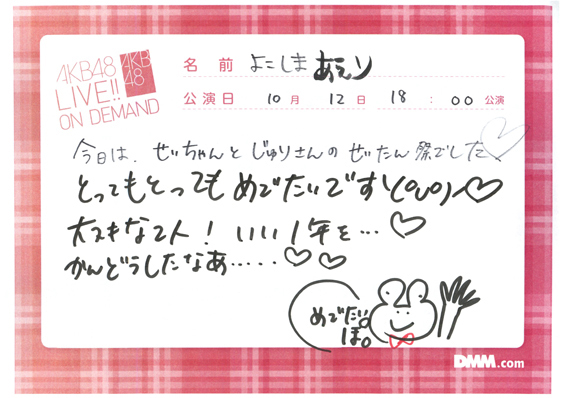 AKB48
LIVE!!
ON DEMAND
AKB
48
名前 よこしま あえり
公演日 10月 12日 18:00 公演
今日は、せいちゃんと じゅりさんの せいたん祭でした♡
とってもとっても めでたいです\(OvO)/♡
大スキな2人! いい1年を…♡
かんどうしたなあ.....♡♡
めでたい。
ぽ。
DMM.com